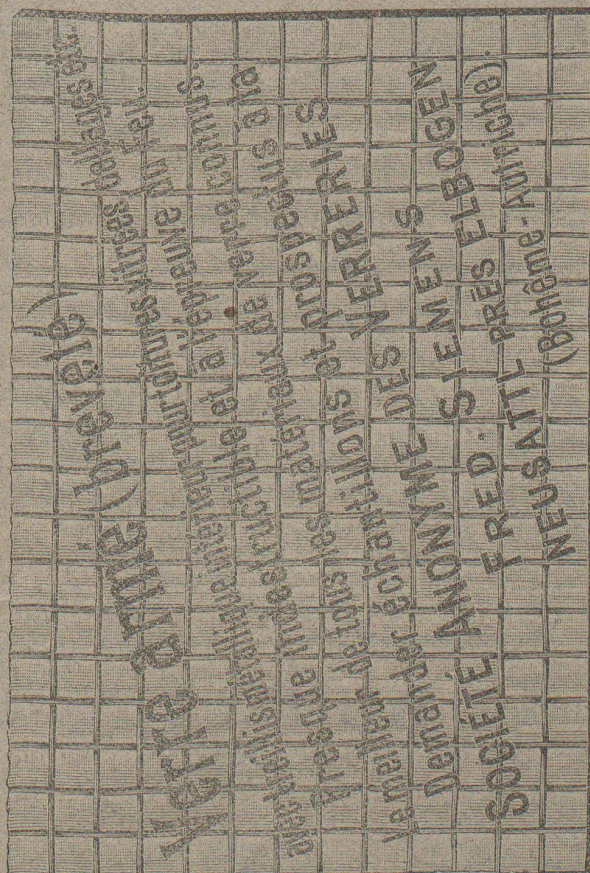 Verre armé (breveté)
avec treillis métallique intérieur pour toitures vitrées dallages etc.
Presque indestructible et à l'épreuve du feu.
Le meilleur de tous les matériaux de verre connus.
Demander échantillons et prospectus à la
SOCIÉTÉ ANONYME DES VERRERIES
FRED. SIEMENS
NEUSATTL PRÈS ELBOGEN
(Bohême-Autriche).